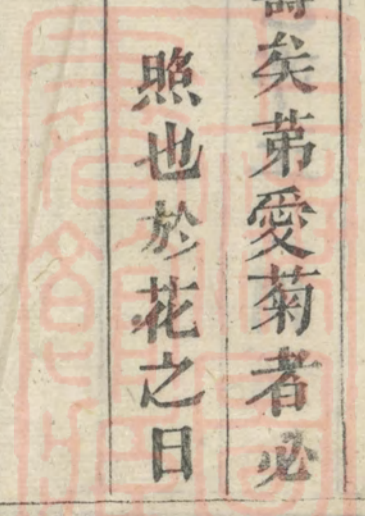 矣苐愛菊者必
照也於花之日